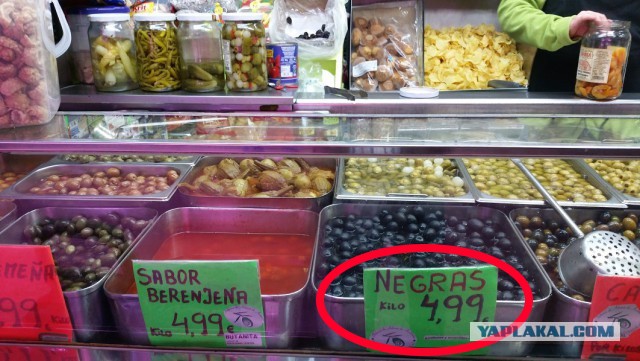 SABOR
BERENJENA
KILO 4,99€
BUTANITA
NEGRAS
KILO 4,99
99
YAPLAKAL.COM